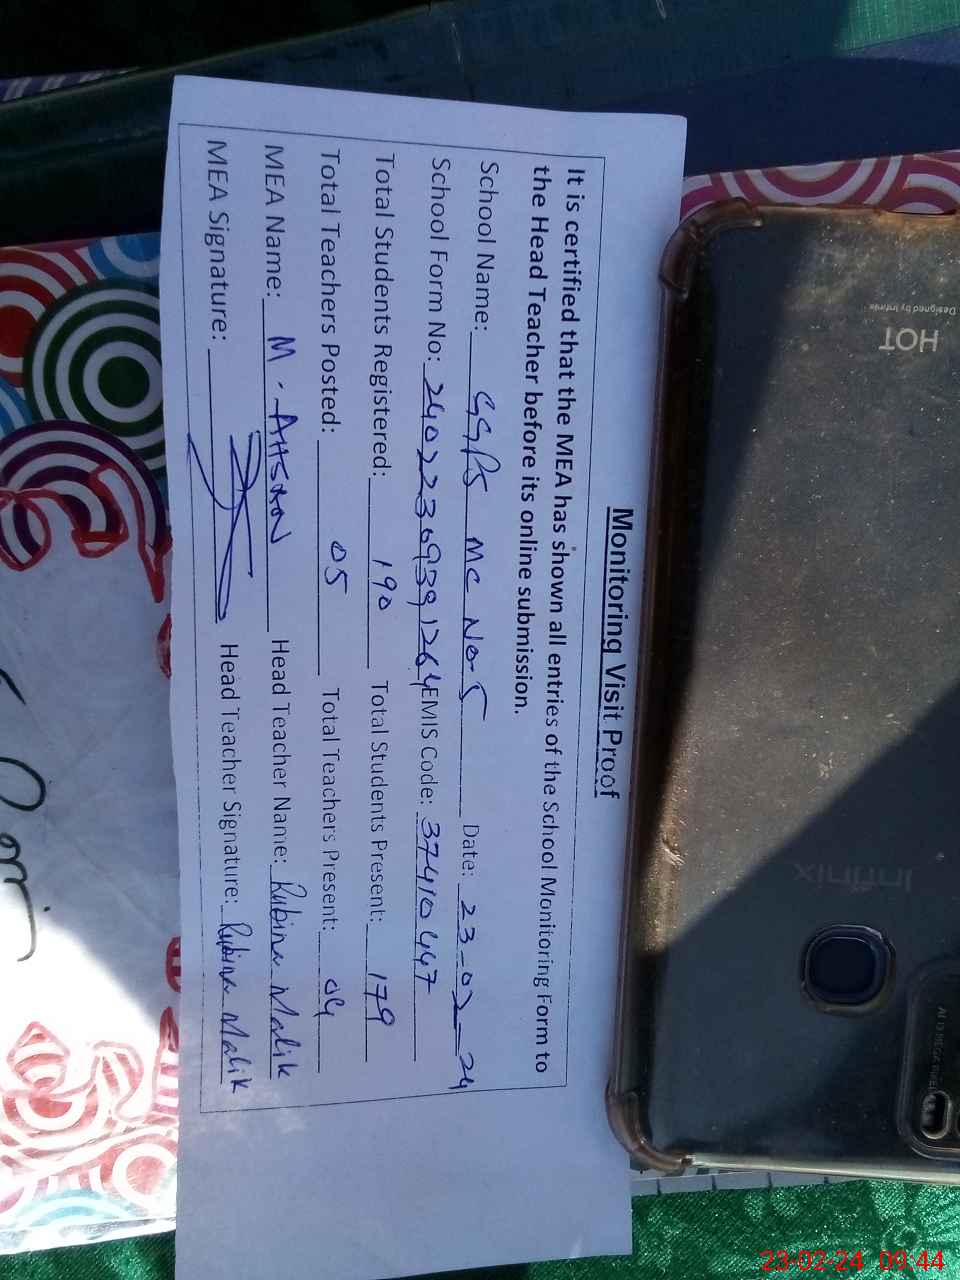 Monitoring Visit Proof
It is certified that the MEA has shown all entries of the School Monitoring Form to
the Head Teacher before its online submission.
School Name: GGPS MC NO-5 Date: 23-02-24
School Form No: 24022309391264 EMIS Code: 37410447
Total Students Registered: 190 Total Students Present: 179
Total Teachers Posted: 05 Total Teachers Present: 04
MEA Name: M. AHSAN Head Teacher Name: Rubina Malik
MEA Signature: Head Teacher Signature: Rubina Malik
HOT
Designed by Infinix
Infinix
23-02-24 09:44